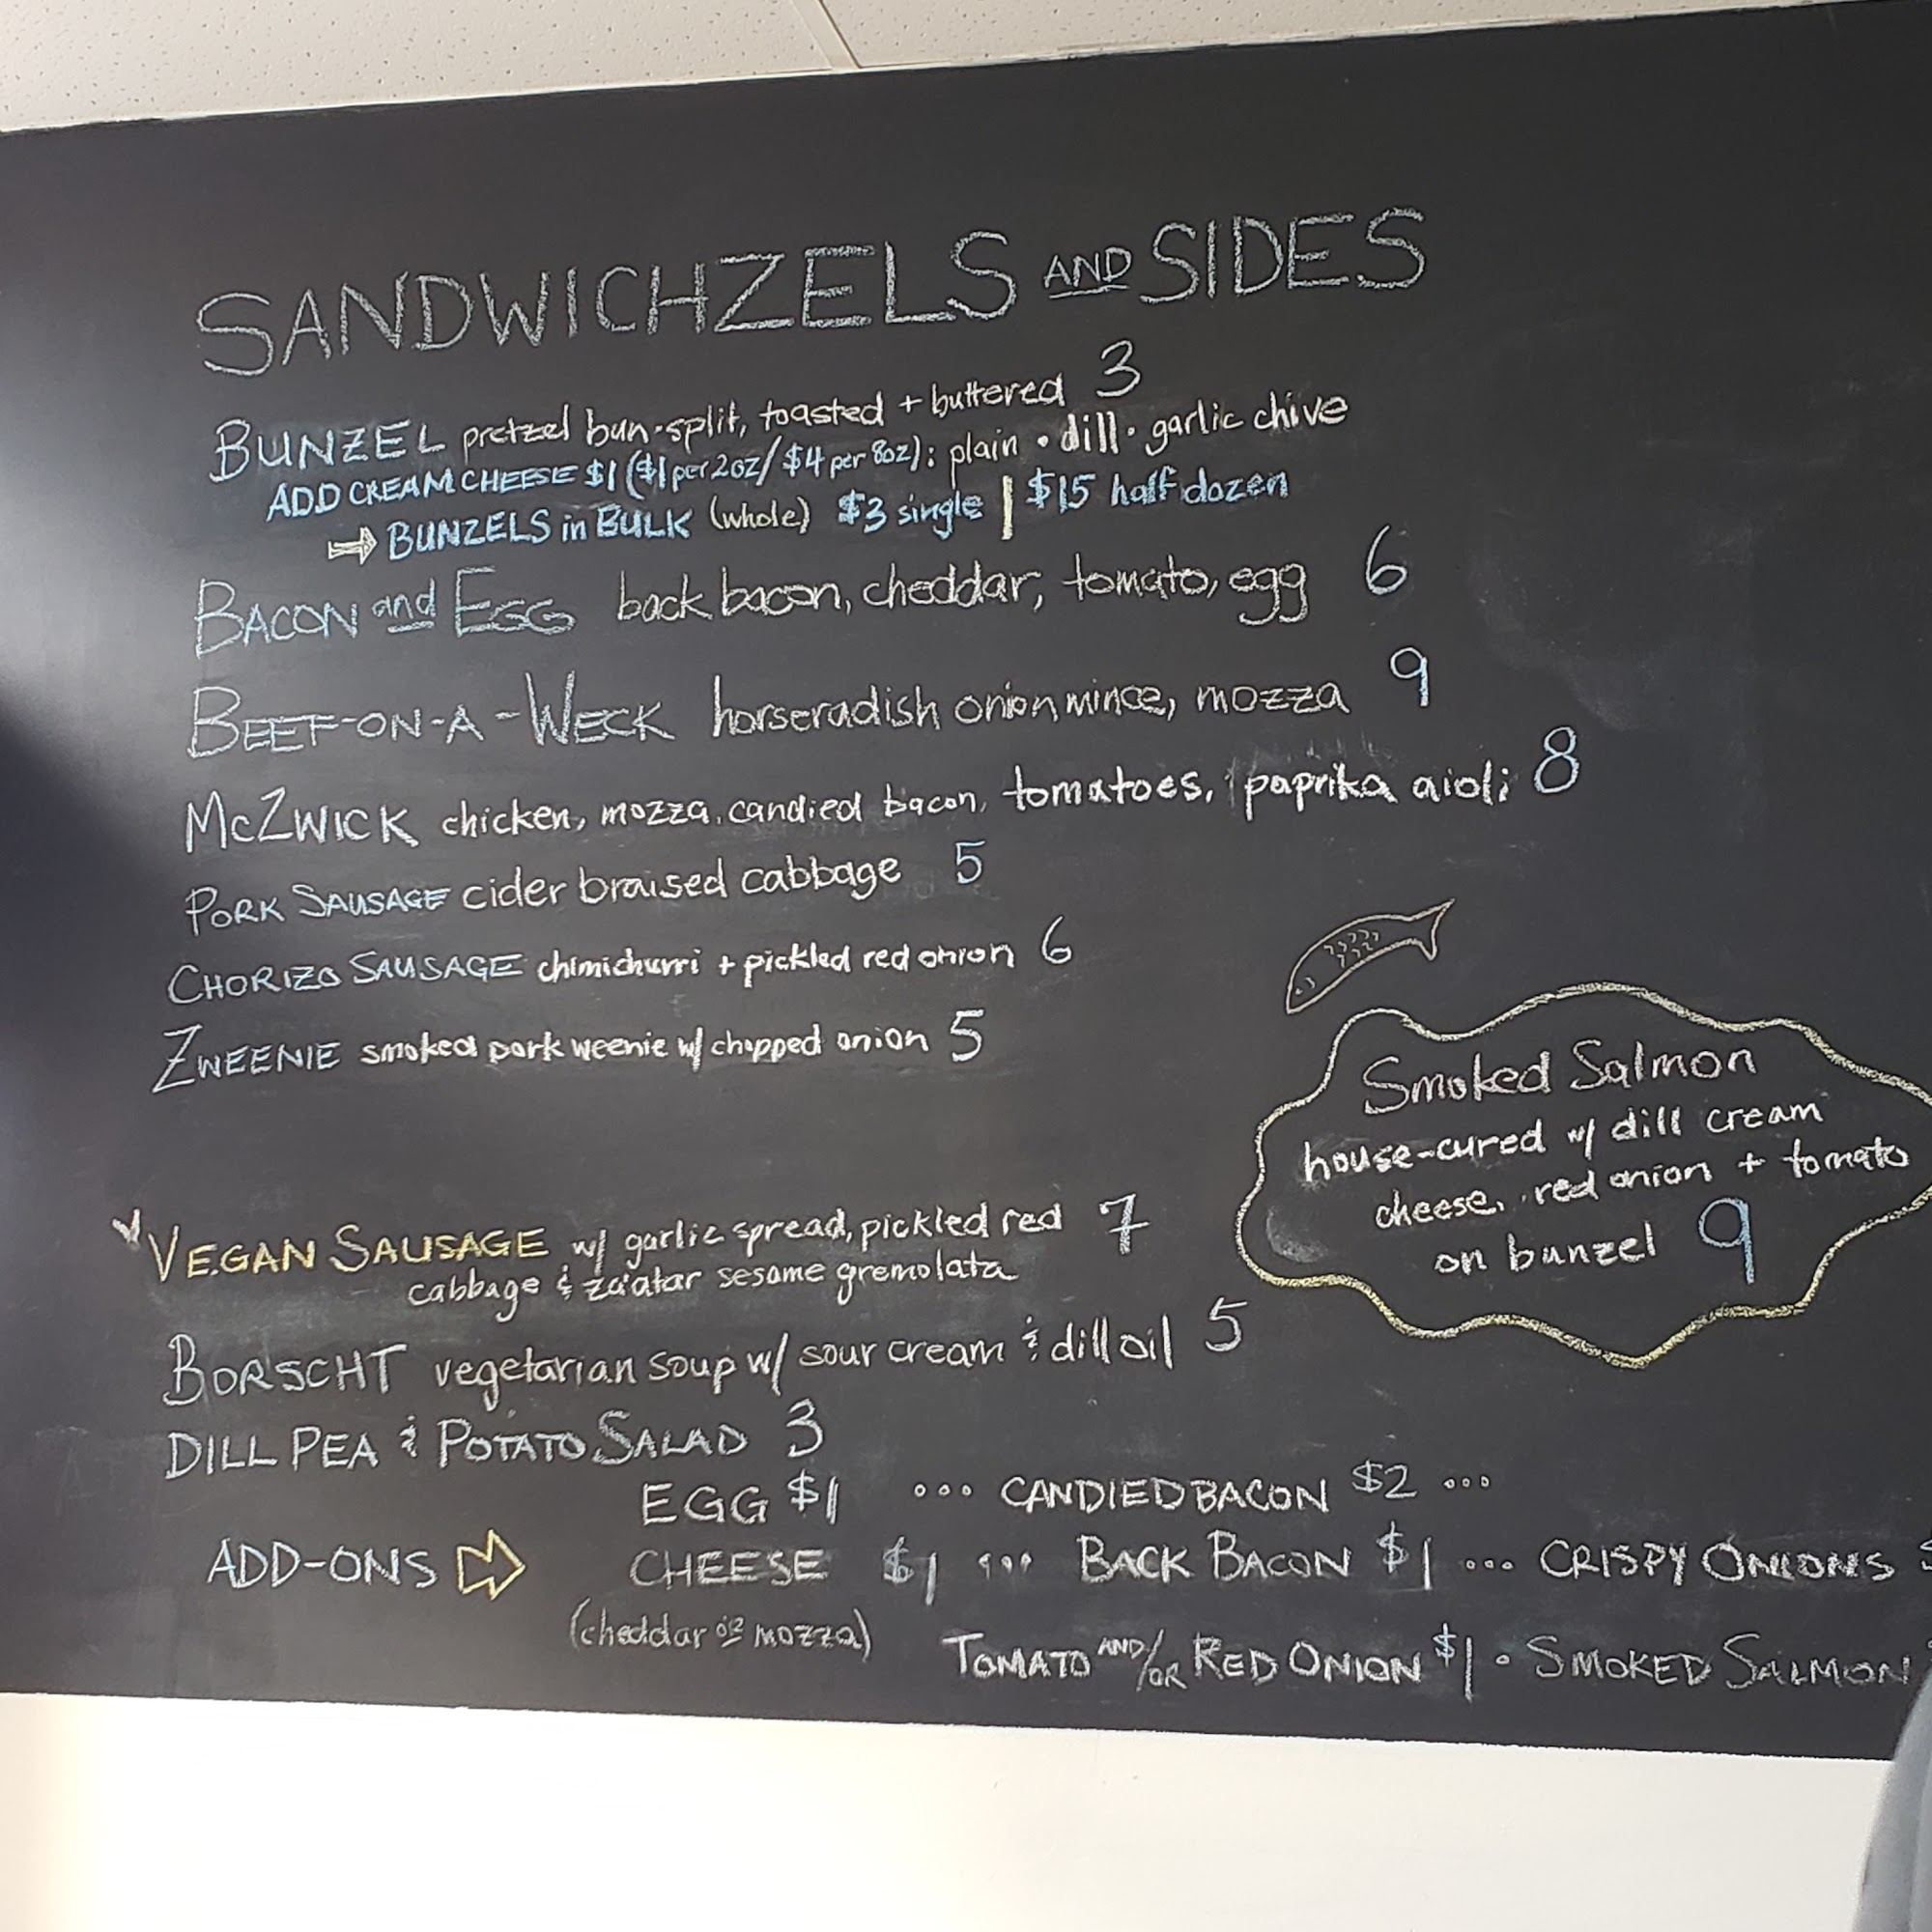 SANDWICHZELS AND SIDES
BUNZEL pretzel bun·split, toasted + buttered 3
ADD CREAM CHEESE $1 ($1 per 2oz/$4 per 8oz): plain · dill · garlic chive
⇒ BUNZELS in BULK (whole) $3 single | $15 half dozen
BACON and EGG back bacon, cheddar, tomato, egg 6
BEEF-ON-A-WECK horseradish onion mince, mozza 9
MCZWICK chicken, mozza, candied bacon, tomatoes, paprika aioli 8
PORK SAUSAGE cider braised cabbage 5
CHORIZO SAUSAGE chimichurri + pickled red onion 6
ZWEENIE smoked pork weenie w/ chopped onion 5
Smoked Salmon
house-cured w/ dill cream
cheese, red onion + tomato
on bunzel 9
VEGAN SAUSAGE w/ garlic spread, pickled red 7
cabbage & za'atar sesame gremolata
BORSCHT vegetarian soup w/ sour cream & dill oil 5
DILL PEA & POTATO SALAD 3
EGG $1 ... CANDIED BACON $2 ...
ADD-ONS ⇒ CHEESE $1 ... BACK BACON $1 ... CRISPY ONIONS
(cheddar or mozza)
TOMATO AND/OR RED ONION $1 · SMOKED SALMON